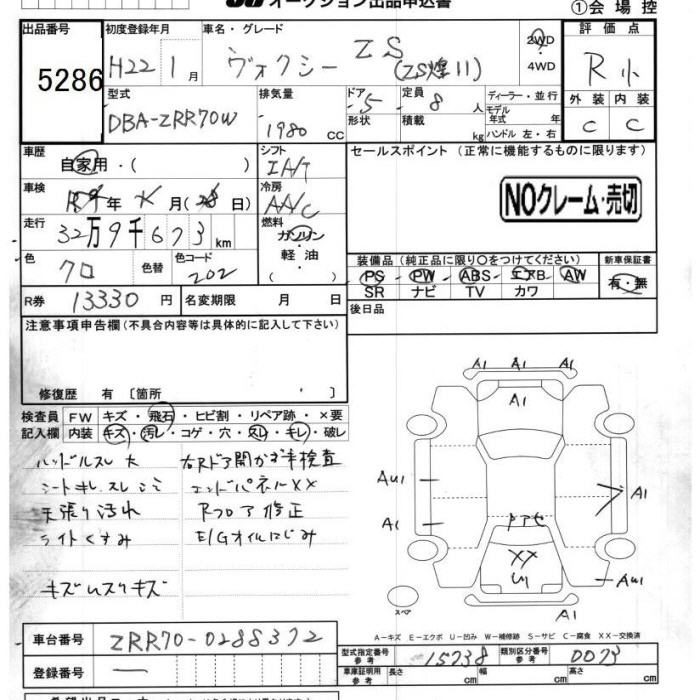 オークション出品申込書
①会場控
出品番号 初度登録年月 車名・グレード 評価点
5286 H22 1月 ヴォクシー ZS (ZS煌II) 2WD 4WD R小
型式 排気量 ドア 定員 ディーラー・並行 外装 内装
DBA-ZRR70W 1980 cc 5 8人 モデル年式 年 C C
形状 積載 kg ハンドル 左・右
車歴 自家用・( ) シフト IA/T セールスポイント (正常に機能するものに限ります)
車検 年 月( 日) 冷房 AA/C NOクレーム・売切
走行 32万9千673km 燃料 ガソリン 軽油 ( )
装備品(純正品に限り○をつけてください) 新車保証書
色 クロ 色替 色コード 202 PS・PW・ABS・エアB・AW 有・無
SR ナビ TV カワ
R券 13330円 名変期限 月 日 後日品
注意事項申告欄(不具合内容等は具体的に記入して下さい)
修復歴 有 〔箇所 〕
検査員 FW キズ・飛石・ヒビ割・リペア跡・×要
記入欄 内装 キズ・汚レ・コゲ・穴・スレ・キレ・破レ
ハンドルスレ大 右Rドア開かず未検査
シートキレ スレ シミ エンドパネルXX
天張り汚れ Rフロア修正
ライトくすみ E/Gオイルにじみ
キズ ムスリキズ
A1 A1 A1
A1
AU1 A1
A1 ドアセ
XX
U1 AU1
スペア
A1
A-キズ E-エクボ U-凹み W-補修跡 S-サビ C-腐食 XX-交換済
車台番号 ZRR70-0288372
型式指定番号 参考 15738 類別区分番号 参考 0073
登録番号 —
車庫証明用 参考 長さ cm 幅 cm 高さ cm